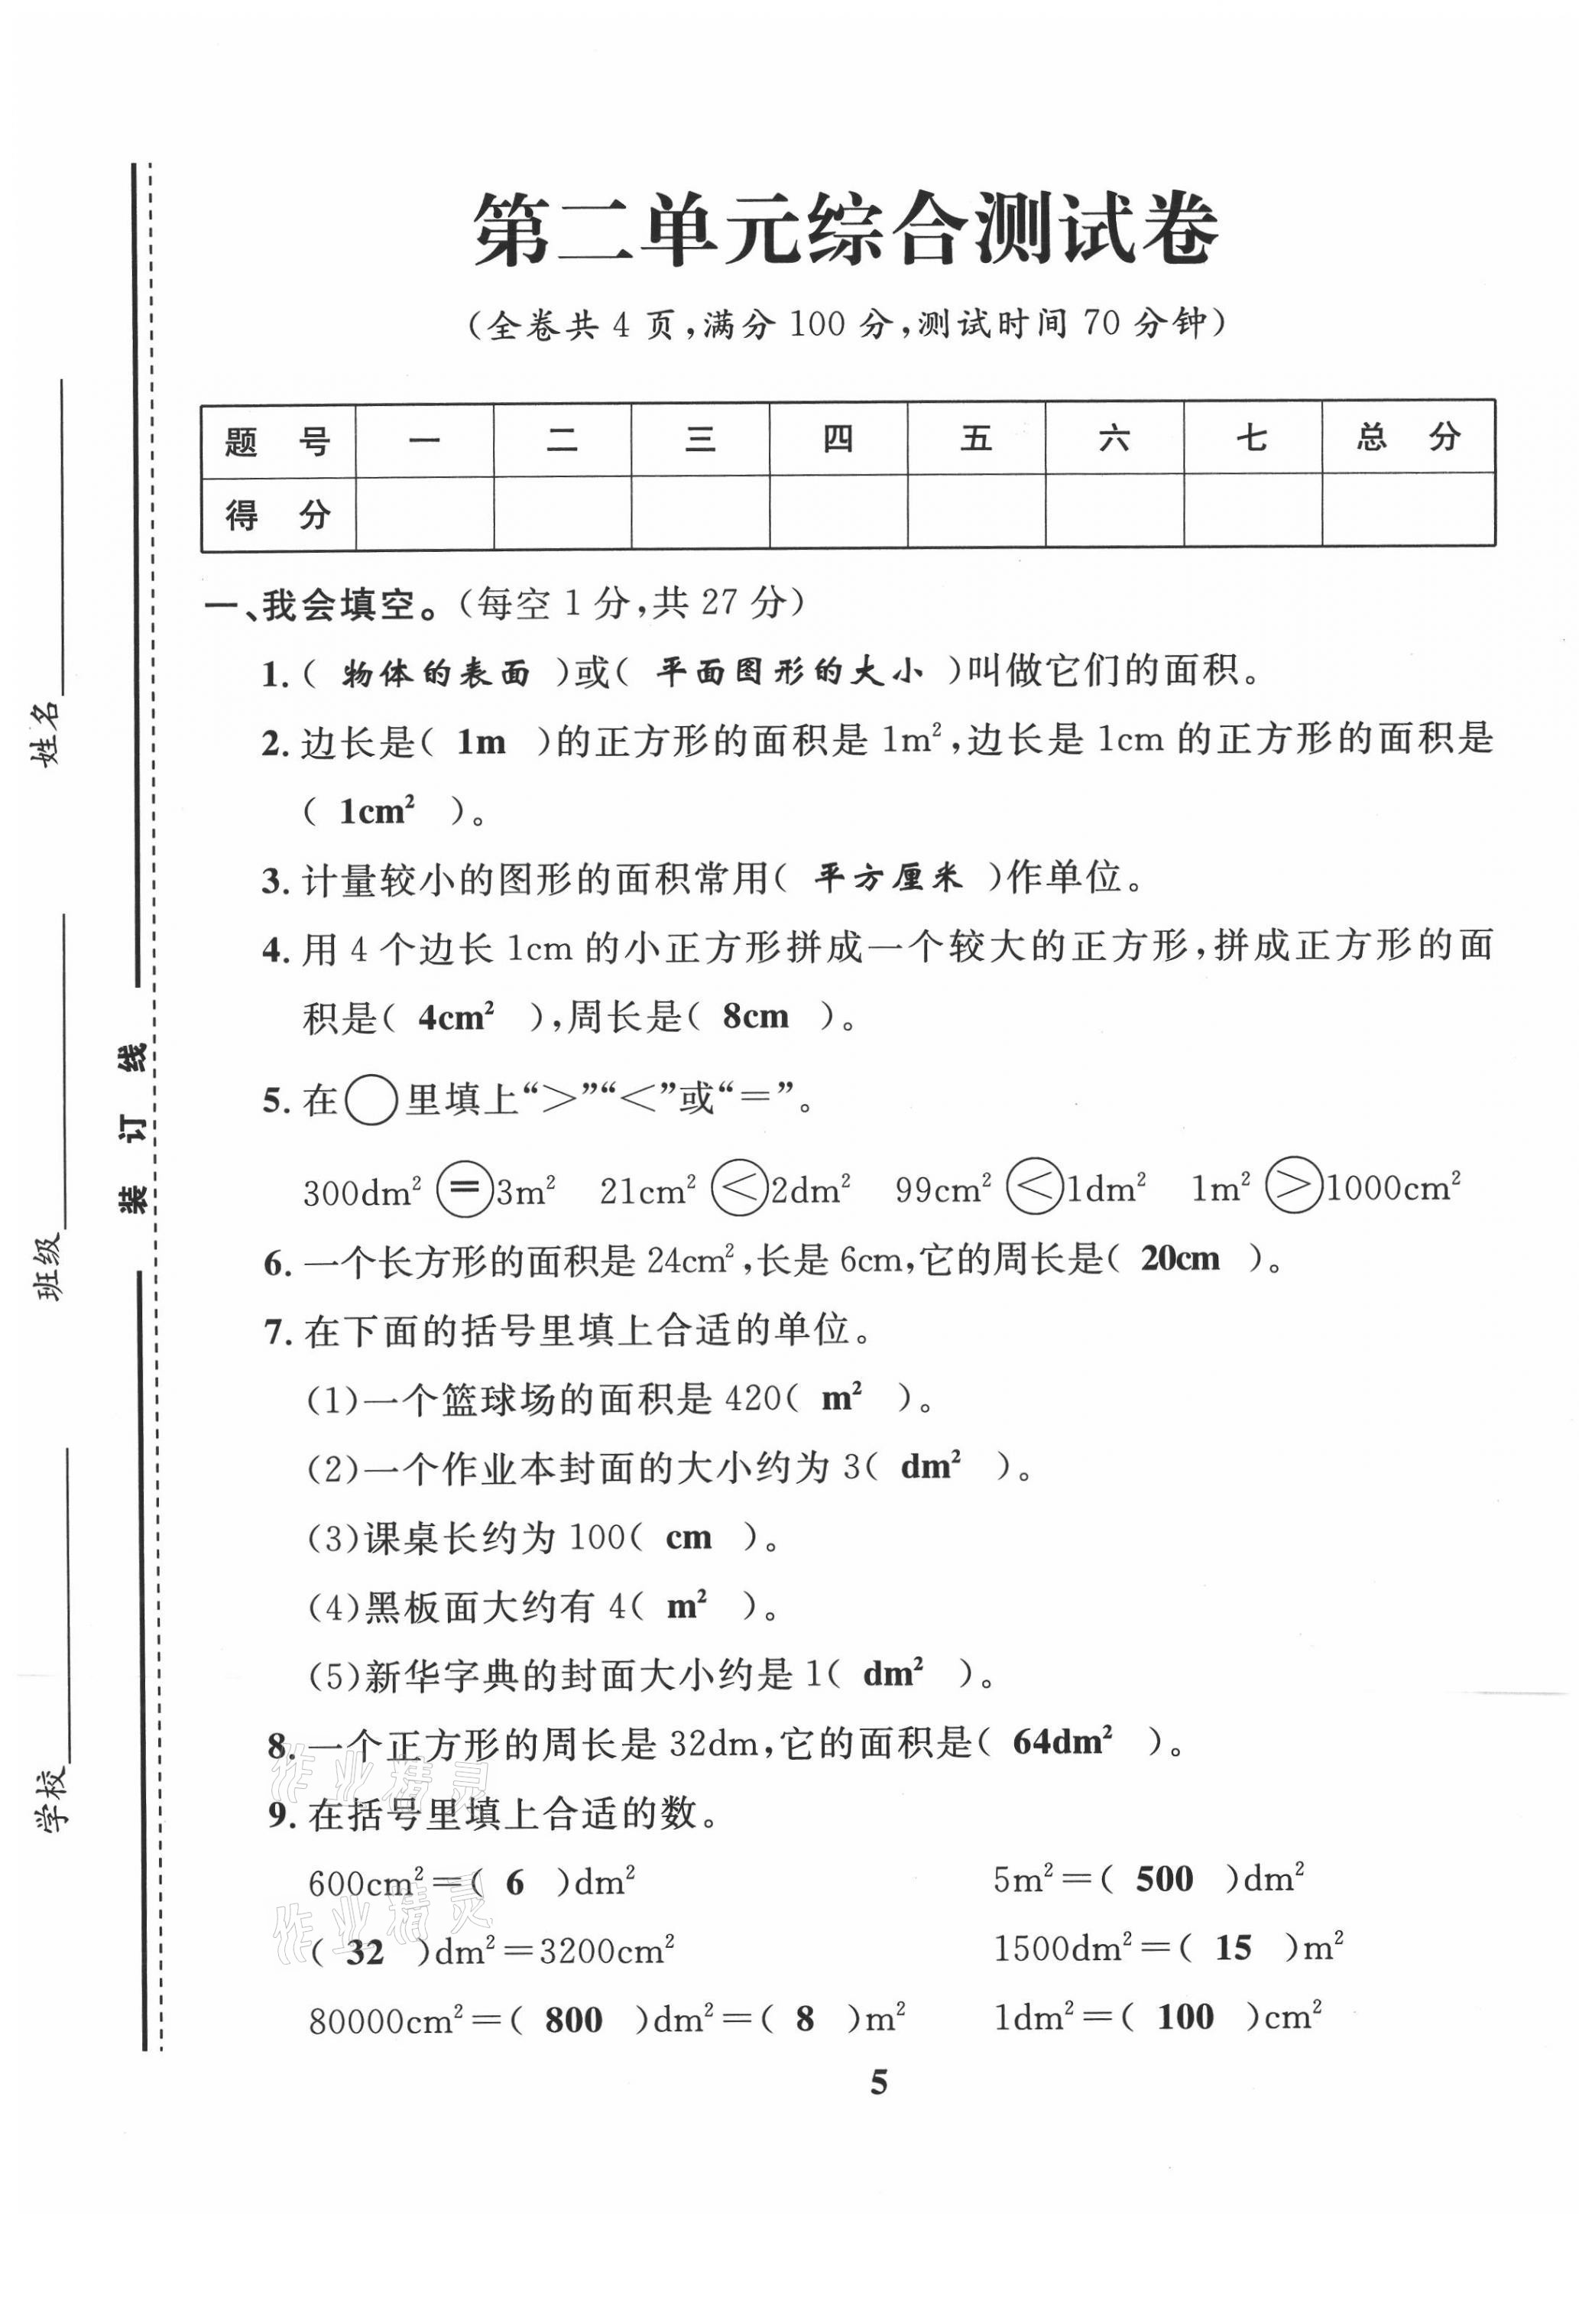 第二单元综合测试卷
(全卷共4页,满分100分,测试时间70分钟)
题 号 一 二 三 四 五 六 七 总 分
得 分
一、我会填空。(每空1分,共27分)
1.( 物体的表面 )或( 平面图形的大小 )叫做它们的面积。
2. 边长是( 1m )的正方形的面积是1m²,边长是1cm的正方形的面积是
( 1cm² )。
3. 计量较小的图形的面积常用( 平方厘米 )作单位。
4. 用4个边长1cm的小正方形拼成一个较大的正方形,拼成正方形的面
积是( 4cm² ),周长是( 8cm )。
5. 在○里填上“>”“<”或“=”。
300dm² = 3m² 21cm² < 2dm² 99cm² < 1dm² 1m² > 1000cm²
6. 一个长方形的面积是24cm²,长是6cm,它的周长是( 20cm )。
7. 在下面的括号里填上合适的单位。
(1)一个篮球场的面积是420( m² )。
(2)一个作业本封面的大小约为3( dm² )。
(3)课桌长约为100( cm )。
(4)黑板面大约有4( m² )。
(5)新华字典的封面大小约是1( dm² )。
8. 一个正方形的周长是32dm,它的面积是( 64dm² )。
9. 在括号里填上合适的数。
600cm²=( 6 )dm² 5m²=( 500 )dm²
( 32 )dm²=3200cm² 1500dm²=( 15 )m²
80000cm²=( 800 )dm²=( 8 )m² 1dm²=( 100 )cm²
5
姓名
班级
学校
装 订 线
作业精灵
作业精灵